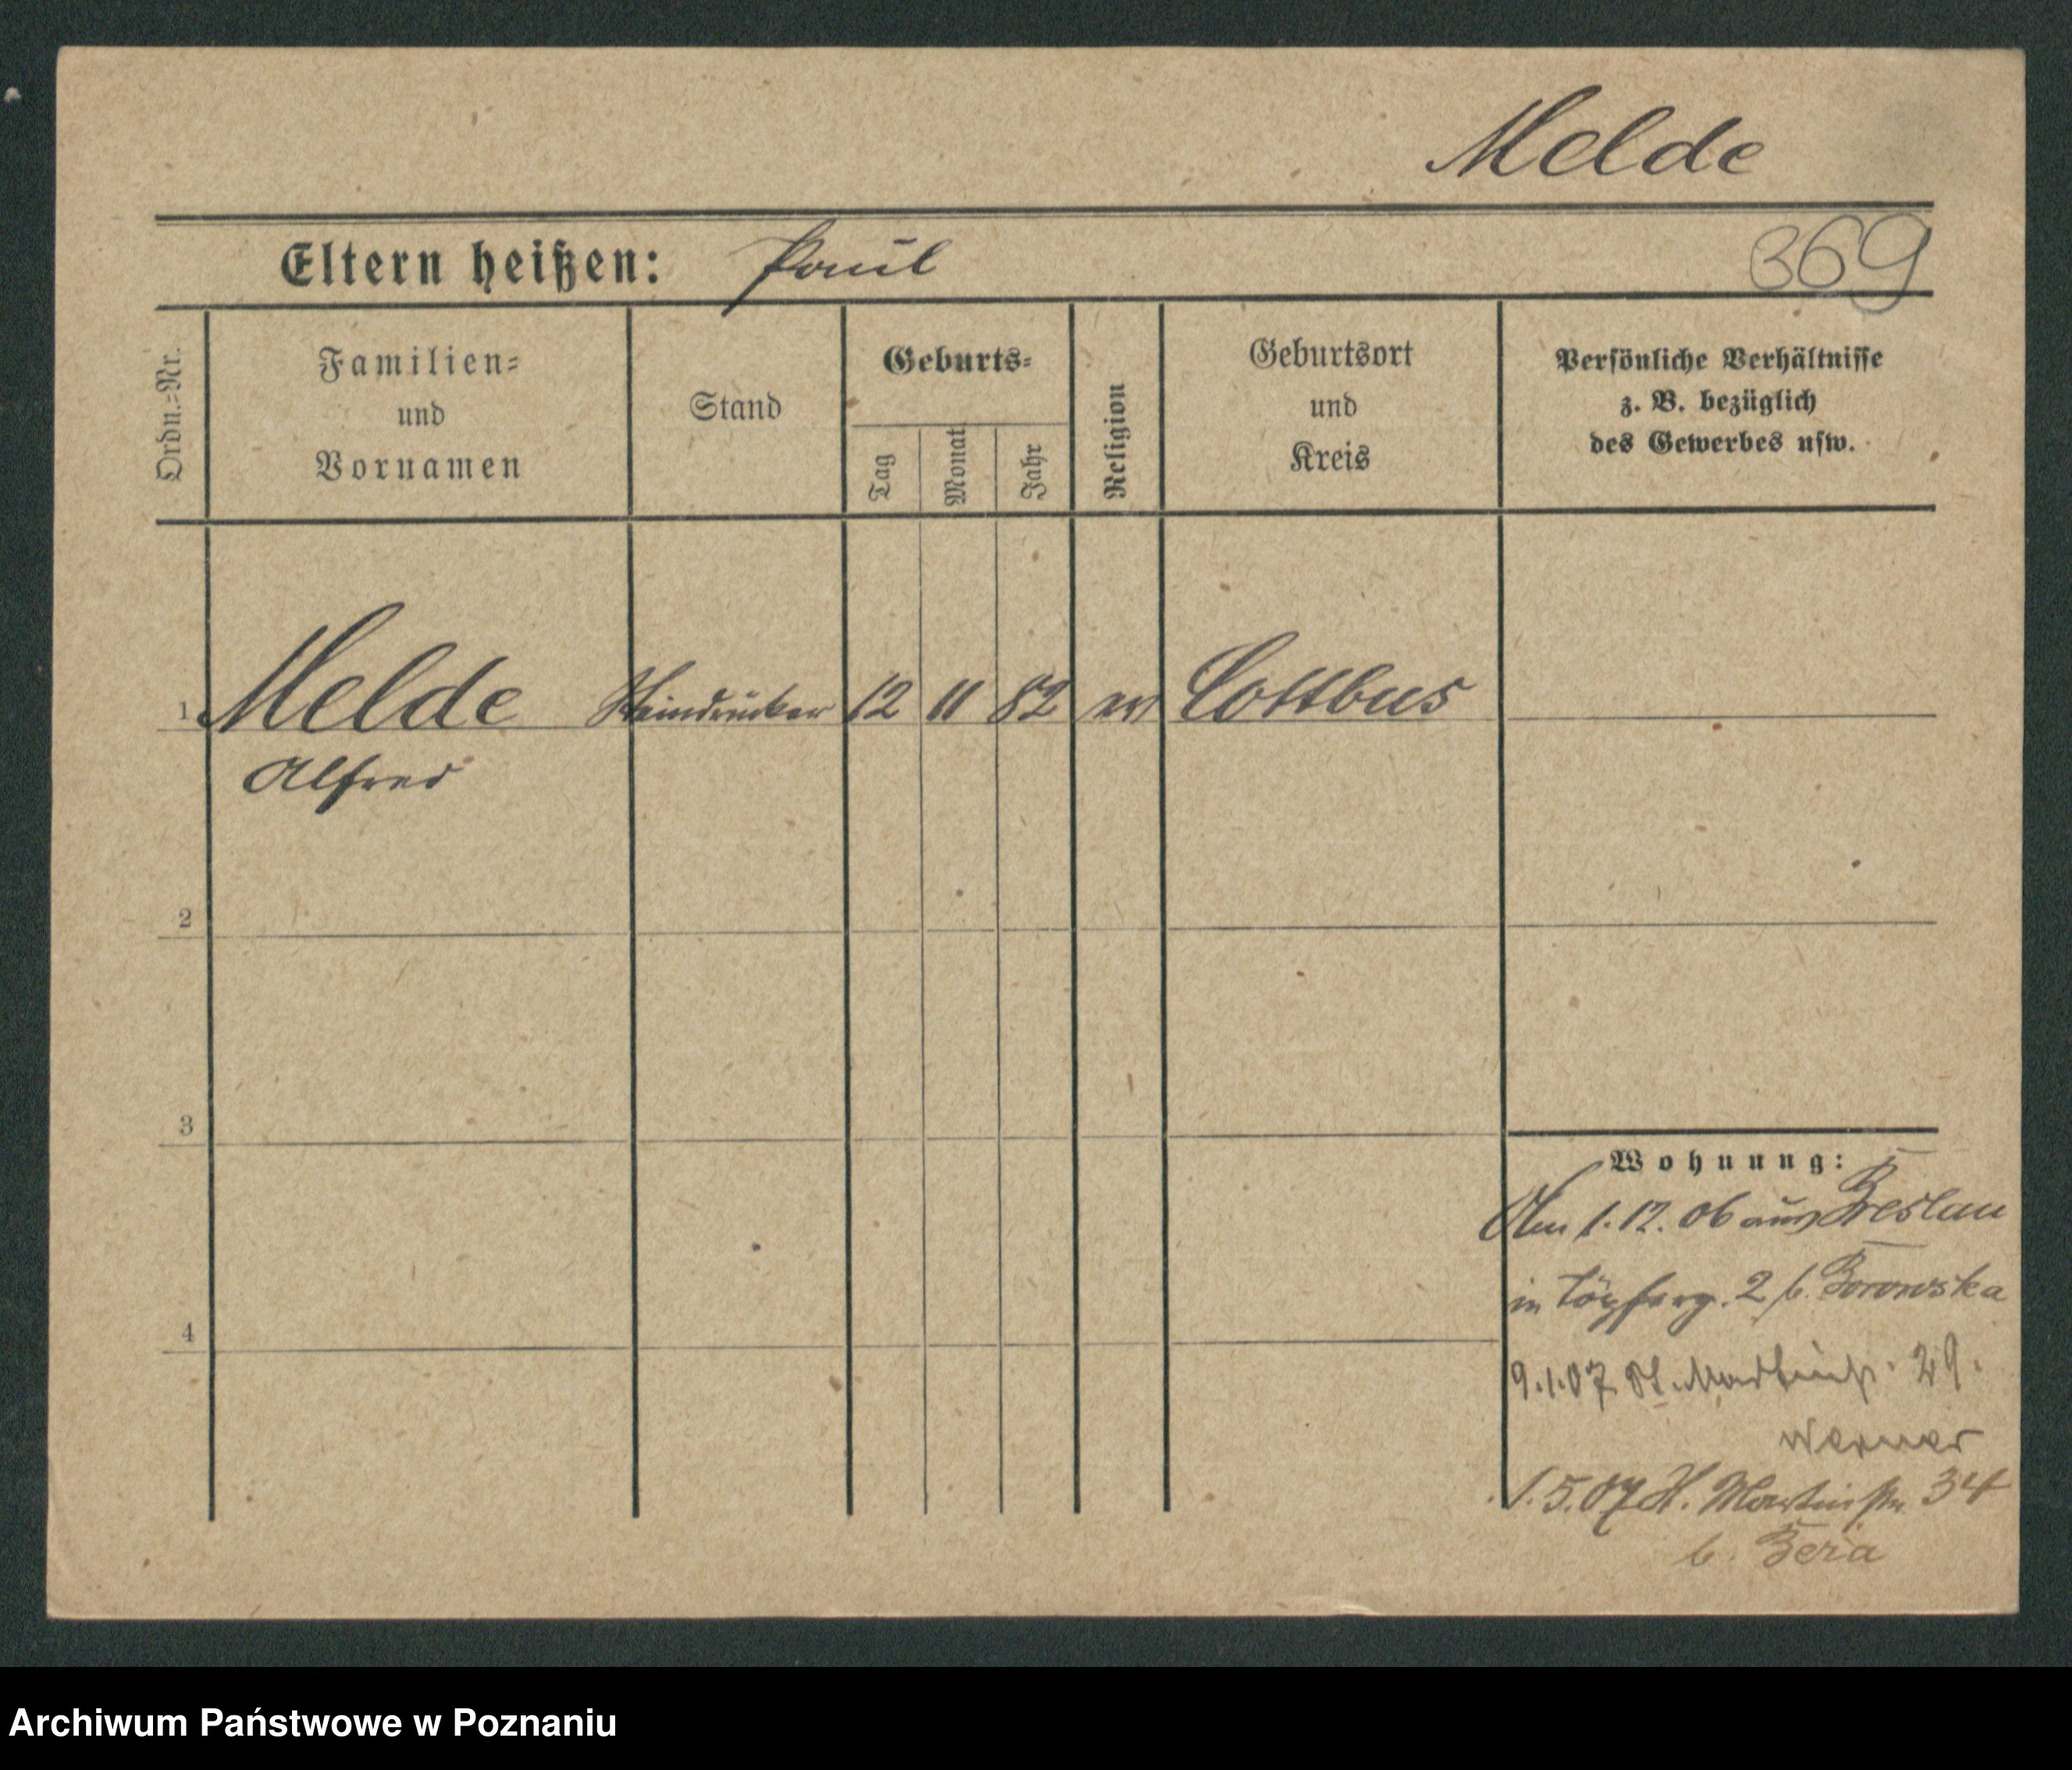 Melde
Eltern heißen: Paul
369
Ordn.-Nr.
Familien-
und
Vornamen
Stand
Geburts-
Tag
Monat
Jahr
Religion
Geburtsort
und
Kreis
Persönliche Verhältnisse
z. B. bezüglich
des Gewerbes usw.
1 Melde Steindrucker 12 11 82 ev Cottbus
Alfred
2
3
4
Wohnung:
Am 1.12.06 aus Breslau
in Töpferg. 2 b. Borowska
9.1.07 St. Martinstr. 29.
Werner
1.5.07 St. Martinstr. 34
b. Beria
Archiwum Państwowe w Poznaniu